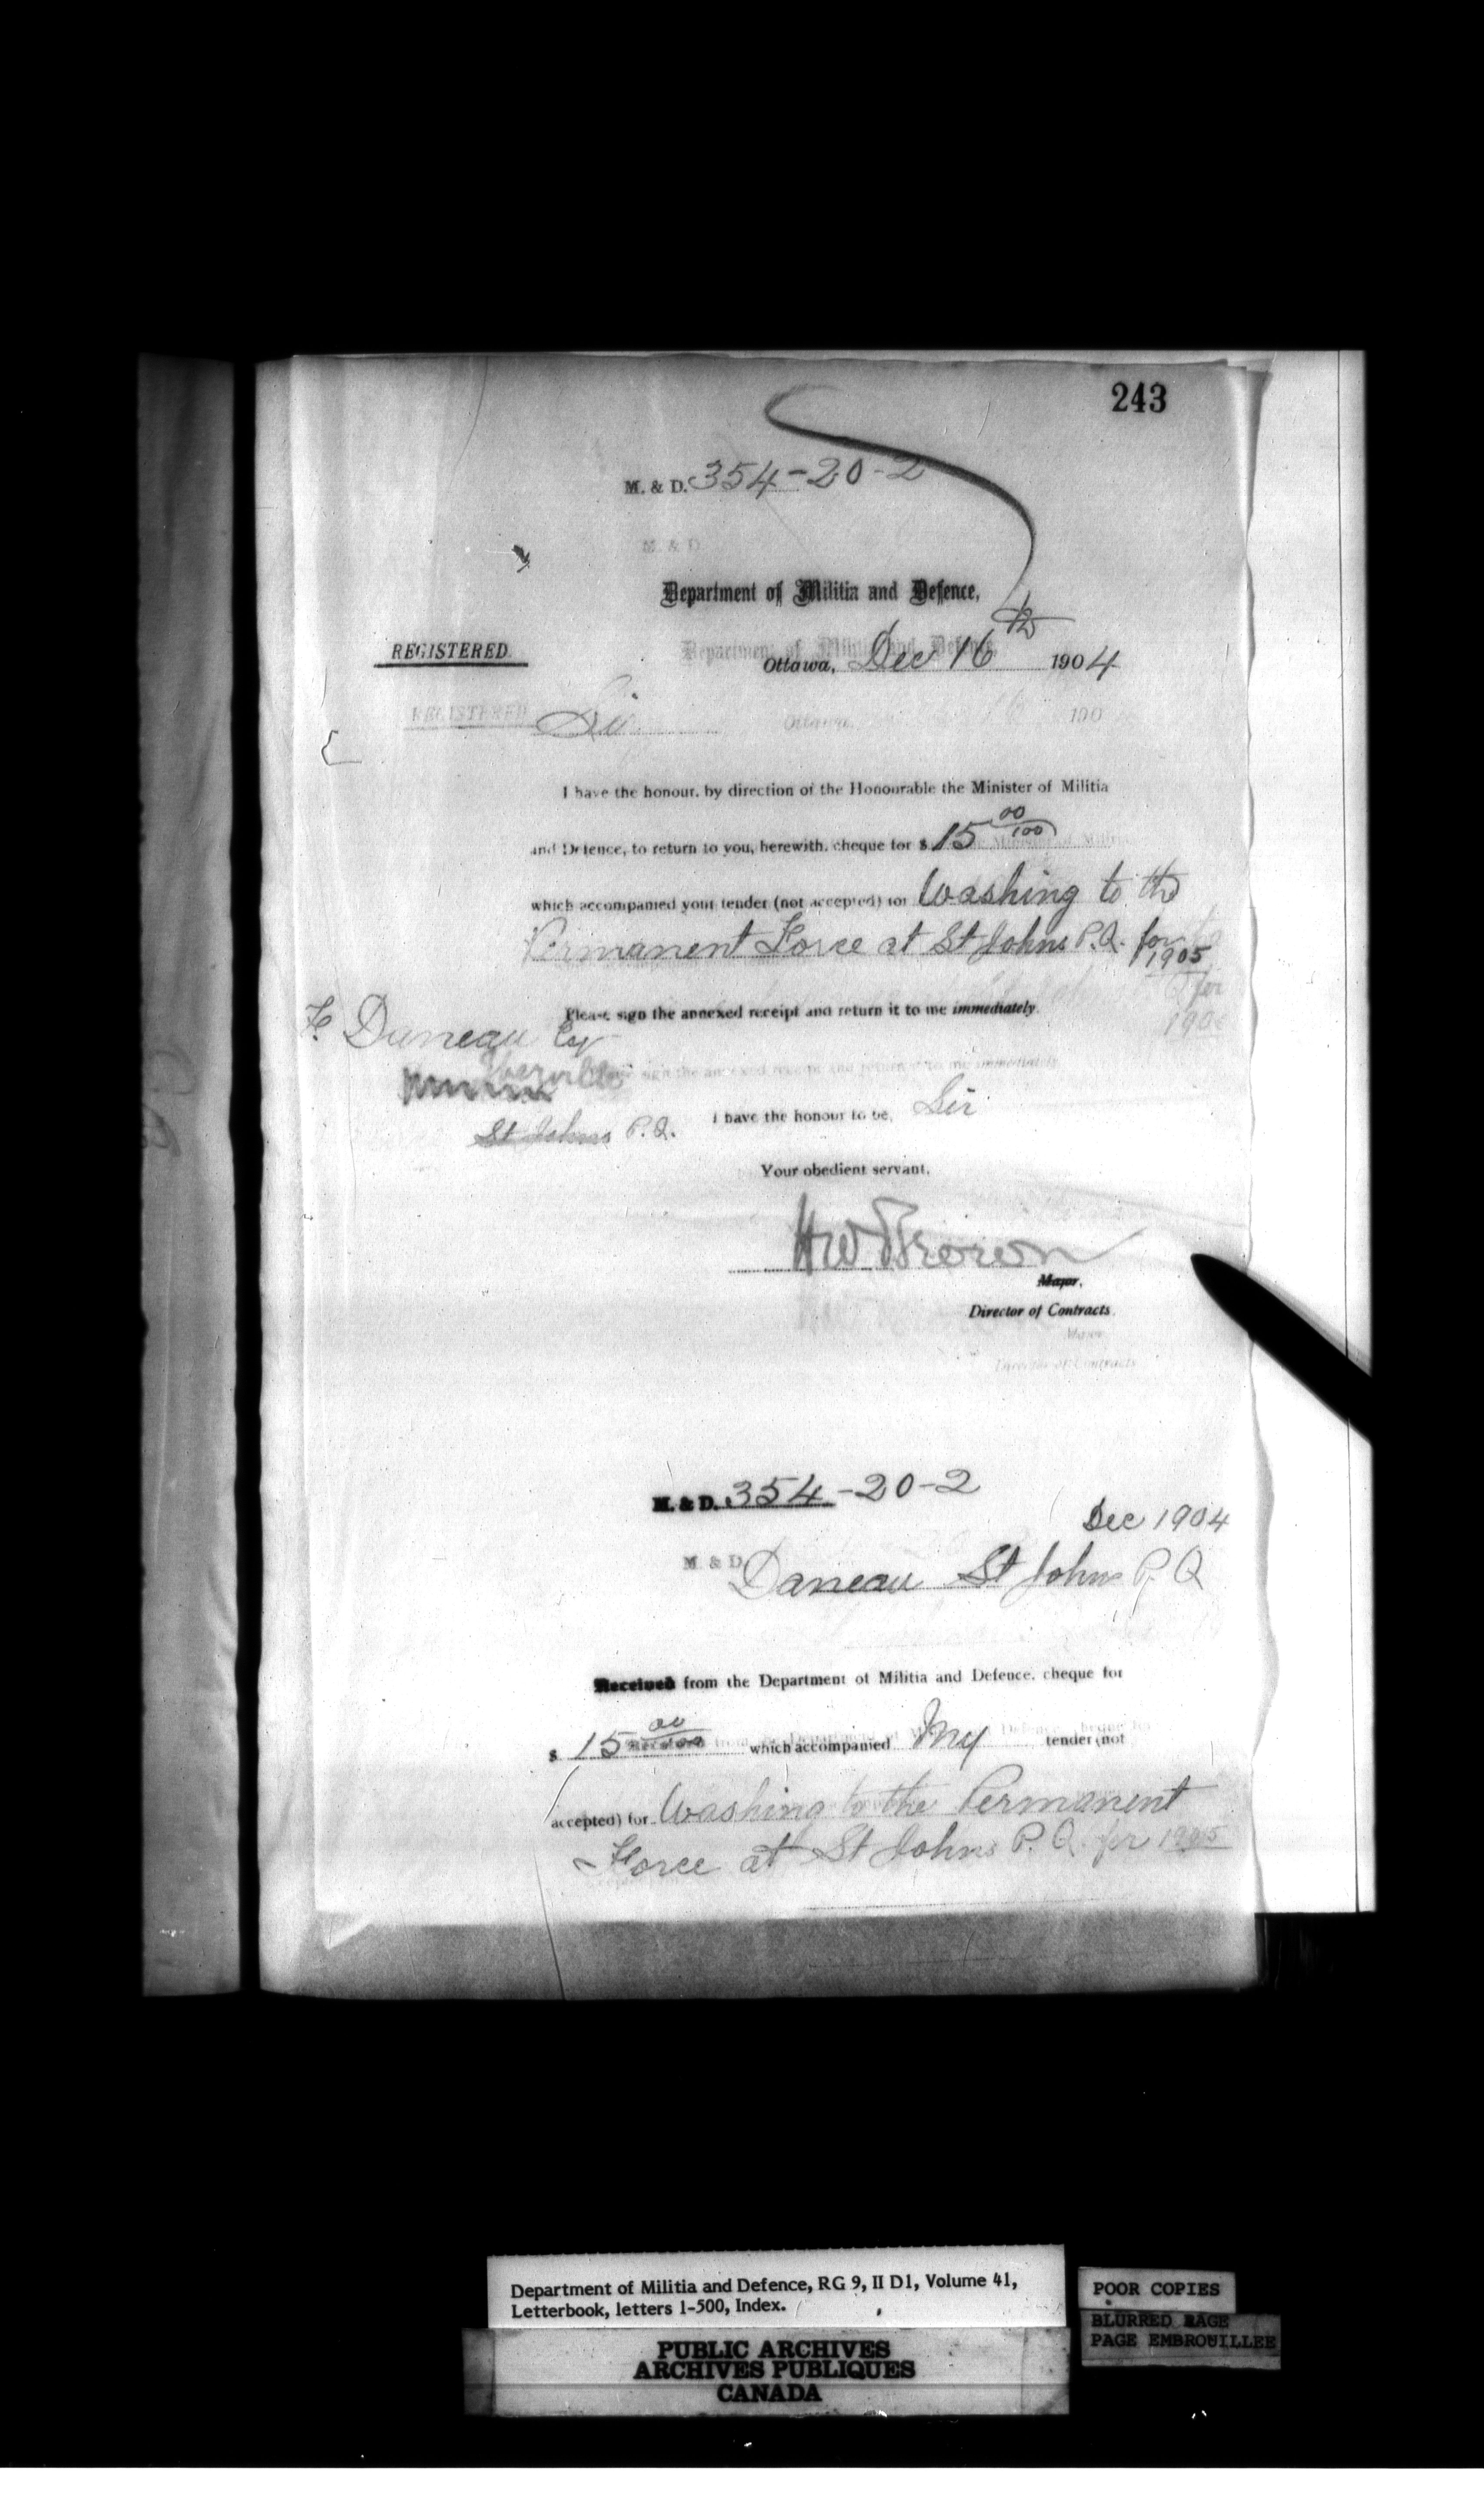 243
M. & D. 354-20-2
M. & D.
Department of Militia and Defence,
REGISTERED.
Ottawa, Dec 16th 1904
Sir
I have the honour, by direction of the Honourable the Minister of Militia
and Defence, to return to you, herewith, cheque for $ 15 00/100
which accompanied your tender (not accepted) for Washing to the
Permanent Force at St Johns P.Q. for
1905
Please sign the annexed receipt and return it to me immediately.
F. Duneau Esq
Iberville
St Johns P.Q.
I have the honour to be, Sir
Your obedient servant,
HW Brown
Major,
Director of Contracts.
M. & D. 354-20-2
Dec 1904
M. & D.
Daneau St Johns P.Q
Received from the Department of Militia and Defence, cheque for
$ 15 00/100 which accompanied My tender (not
accepted) for Washing to the Permanent
Force at St Johns P.Q. for 1905
Department of Militia and Defence, RG 9, II D1, Volume 41,
Letterbook, letters 1-500, Index.
PUBLIC ARCHIVES
ARCHIVES PUBLIQUES
CANADA
POOR COPIES
BLURRED PAGE
PAGE EMBROUILLEE